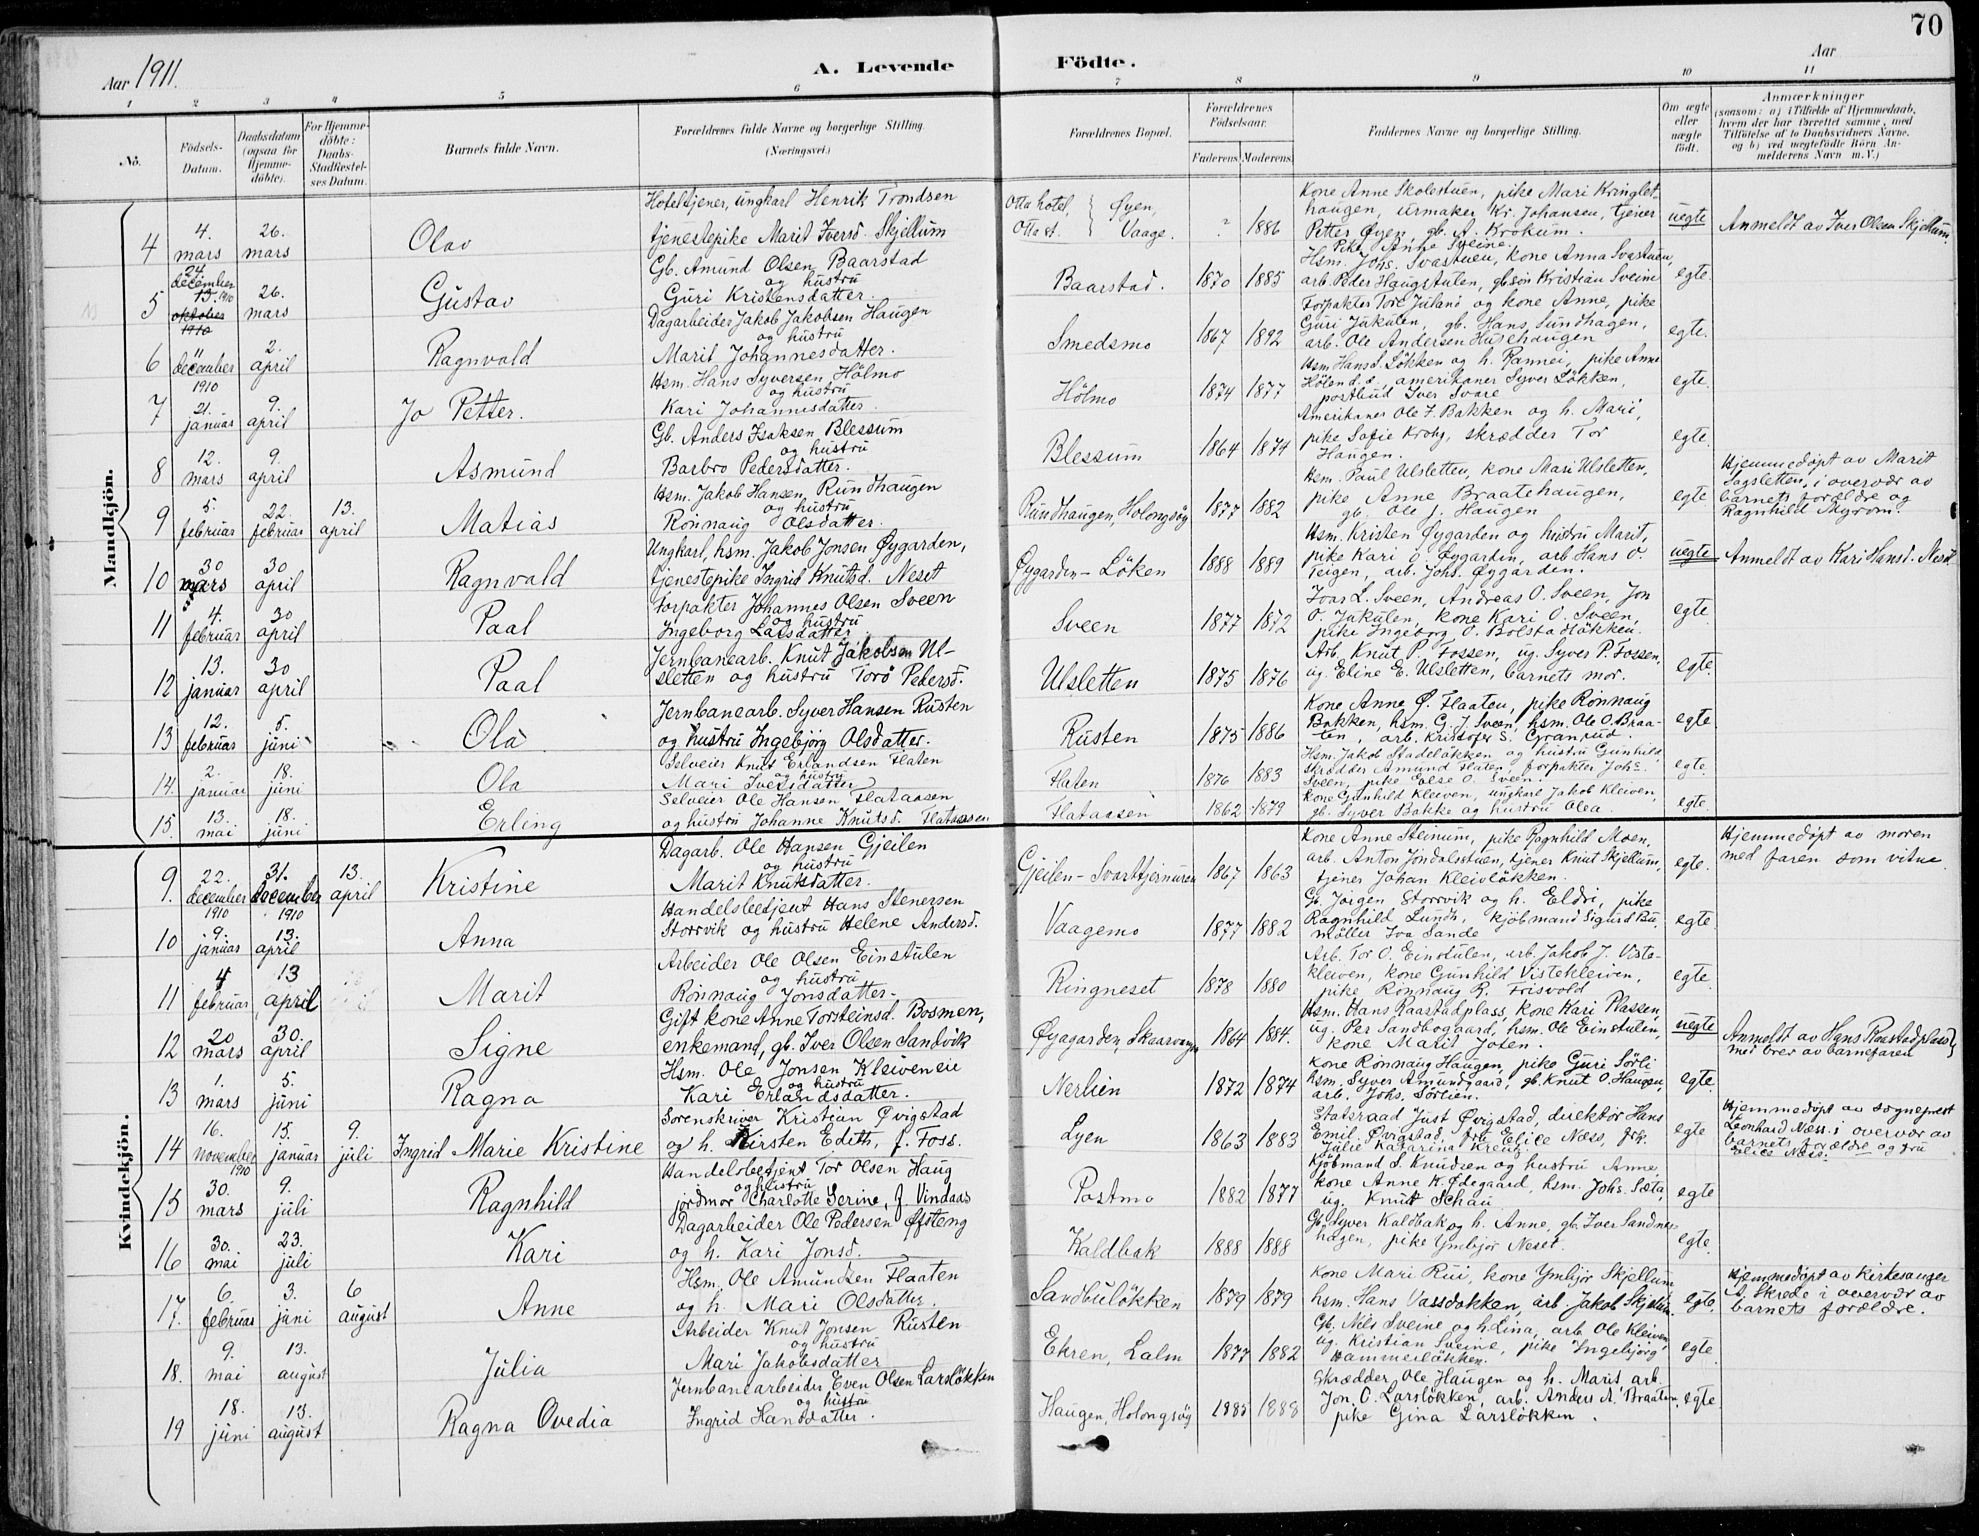 70
Aar 1911.
A. Levende Födte.
Aar
1 2 3 4 5 6 7 8 9 10 11
No.
Födsels-Datum.
Daabsdatum (ogsaa for Hjemmedöbte).
For Hjemmedöbte: Daabs-Stadfæstelses Datum.
Barnets fulde Navn.
Forældrenes fulde Navne og borgerlige Stilling (Næringsvei.)
Forældrenes Bopæl.
Forældrenes Födselsaar.
Faderens Moderens
Faddernes Navne og borgerlige Stilling.
Om ægte eller uægte födt.
Anmærkninger
(saasom: a) i Tilfælde af Hjemmedaab, hvem der har forrettet samme, med Tilföielse af to Daabsvidners Navne, og b) ved uægtefödte Börn Anmelderens Navn m. V.)
Mandkjön.
4 4. mars 26. mars Olav
Hoteltjener, ungkarl Henrik Trondsen
tjenestepike Marit Iversd. Skjellum
Otta hotel, Otta st. } Øyen, Vaage. " 1886
Kone Anne Skolestuen, pike Mari Kringlet-
haugen, urmaker Kr. Johansen, tjener
Petter Øyen, gb. A. Krohum.
Pike Anne Sveine.
uegte Anmeldt av Iver Olsen Skjellum
5 24. december 1910 13. oktober 1910 26. mars Gustav
Gb. Amund Olsen Baarstad
og hustru
Guri Kristensdatter.
Baarstad. 1870 1885
Hsm. Johs. Svastuen, kone Anna Svastuen,
arb. Peder Haugstulen, gb.søn Kristian Sveine
egte.
6 11 december 1910 2. april Ragnvald
Dagarbeider Jakob Jakobsen Haugen
og hustru
Marit Johannesdatter.
Smedsmo 1867 1892
Forpakter Tore Juland og kone Anne, pike
Guri Jakulen, gb. Hans Sundhagen,
arb. Ole Andersen Husehaugen
egte.
7 21. januar 9. april Jo Petter.
Hsm. Hans Syversen Hölmo
og hustru
Kari Johannesdatter.
Hölmo 1874 1877
Hsm Hans S. Løkken og h. Rannei, pike Anne
Hølen d. e., amerikaner Syver Løkken,
postbud Iver Svare
egte.
8 12. mars 9. april Asmund
Gb. Anders Isaksen Blessum
og hustru
Barbro Pedersdatter.
Blessum 1864 1874
Amerikaner Ole J. Bakken og h. Mari,
pike Sofie Krohg, skrædder Tor
Haugen.
egte.
9 5. februar 22. februar 13. april Matias
Hsm. Jakob Hansen Rundhaugen
og hustru
Rønnaug Olsdatter.
Rundhaugen, Holongsøy 1877 1882
Hsm. Paul Ulsletten, kone Mari Ulsletten,
pike Anne Braatehaugen,
gb. Ole J. Haugen
egte
Hjemmedøpt av Marit
Sagsletten, i overvær av
barnets forældre og
Ragnhild Myrom.
10 30 mars 30 april Ragnvald
Ungkarl, hsm. Jakob Jonsen Øygarden,
tjenestepike Ingrid Knutsd. Neset
Øygarden - Løken 1888 1889
Hsm. Kristen Øygarden og hustru Marit,
pike Kari O. Øygarden, arb. Hans O.
Teigen, arb. Johs. Øygarden.
uegte Anmeldt av Kari Hansd. Neset
11 4. februar 30 april Paal
Forpakter Johannes Olsen Sveen
og hustru
Ingeborg Larsdatter
Sveen 1877 1872
Ivar L. Sveen, Andreas O. Sveen, Jon
O. Jakulen, kone Kari O. Sveen,
pike Ingeborg O. Bolstahøkken.
egte.
12 13. januar 30 april Paal
Jernbanearb. Knut Jakobsen Ul-
sletten og hustru Torø Pedersd.
Ulsletten 1875 1876
Arb. Knut P. Fossen, ug. Syver P. Fossen,
ug. Eline E. Ulsletten, barnets mor.
egte.
13 12. februar 5. juni Ola
Jernbanearb. Syver Hansen Rusten
og hustru Ingebjørg Olsdatter.
Rusten 1875 1886
Kone Anne Ø. Flaaten, pike Rønnaug
Bakken, hsm. G. J. Sveen, hsm. Ole O. Braa-
ten, arb. Kristofer S. Granrud.
egte.
14. 2. januar 18. juni Ola
Selveier Knut Erlandsen Flaten
og hustru
Mari Iversdatter
Flaten 1876 1883
Hsm. Jakob Stadeløkken og hustru Gunhild,
skrædder Amund Flaten, forpakter Johs.
Sveen, pike Else O. Sveen.
egte.
15. 13. mai 18. juni Erling
Selveier Ole Hansen Flataasen
og hustru Johanne Knutsd. Flataasen
Flataasen 1862 1879
Kone Gunhild Kleiven, ungkarl Jakob Kleiven,
gb. Syver Bakke og hustru Olea.
egte.
Kvindekjön.
9. 22. december 1910 31. december 1910 13. april Kristine
Dagarb. Ole Hansen Gjeilen
og hustru
Marit Knutsdatter.
Gjeilen - Svarttjernuren 1867 1863
Kone Anne Steinum, pike Ragnhild Moen,
arb. Anton Jøndalsstuen, tjener Knut Skjellum,
tjener Johan Kleivløkken.
egte.
Hjemmedøpt av moren
med faren som vitne
10 9. januar 13. april Anna
Handelsbetjent Hans Stenersen
Storvik og hustru Helene Andersd.
Vaagemo 1877 1882
Gb. Jørgen Storrvik og h. Eldri, pike
Ragnhild Lundh, kjøbmand Sigurd Bu,
møller Iva Sande
egte.
11 4 februar 13 april Marit
Arbeider Ole Olsen Einstulen
og hustru
Rønnaug Jonsdatter.
Ringneset 1878 1880
Arb. Tor O. Einstulen, arb. Jakob J. Viste-
kleiven, kone Gunhild Vistekleiven,
pike Rønnaug R. Frisvold
egte.
12 20 mars 30. april Signe
Gift kone Anne Torsteinsd. Bosmen,
enkemand, gb. Iver Olsen Sandvik
Øyagarden, Skaarvangen 1864 1884.
Hsm. Hans Raastadplass, kone Kari Plassen,
ug. Per Sandbogaard, hsm. Ole Einstulen,
kone Marit Joten.
uegte
Anmeldt av Hans Raastadplass
med brev av barnefaren
13 1. mars 5. juni Ragna
Hsm. Ole Jonsen Kleiveneie
og hustru
Kari Erlandsdatter.
Nerlien 1872 1874
Kone Rønnaug Haugen, pike Guri Sørli
hsm. Syver Amundgaard, gb. Knut O. Haugen,
arb. Johs. Sørlien.
egte.
14 16. november 1910 15. januar 9. juli Ingrid Marie Kristine
Sorenskriver Kristian Øvigstad
og h. Kirsten Edith, f. Foss.
Lyen 1863 1883
Statsraad Just Øvigstad, direktør Hans
Emil Øvigstad, fru Elise Næss, frk.
Julie Katarina Kreutz.
egte
Hjemmedøpt av sogneprest
Leonhard Næss i overvær av
barnets forældre og fru
Elise Næss.
15 30. mars 9. juli Ragnhild
Handelsbetjent Tor Olsen Haug
og hustru
jordmor Charlotte Serine, f. Vindaas
Postmo 1882 1877
Kjøbmand S. Knudsen og hustru Anne,
kone Anne K. Ødegaard, hsm. Johs. Sæta,
ug. Knut Schau
egte
16 30. mai 23. juli Kari
Dagarbeider Ole Pedersen Øfsteng
og h. Kari Jonsd.
Kaldbak 1888 1888
Gb. Syver Kaldbak og h. Anne, gb. Iver Sandnes-
hagen, pike Ymbjør Neset.
egte.
17. 6. februar 3. juni 6 august Anne
Hsm. Ole Amundsen Flaaten
og h. Mari Olsdatter.
Sandbuløkken 1879 1879
Kone Mari Rui, kone Ymbjør Skjellum
hsm. Hans Vassdokken, arb. Jakob Skjellum.
egte.
Hjemmedøpt av kirkesanger
A. Skrede i overvær av
barnets forældre.
18. 9. mai 13. august Julia
Arbeider Knut Jonsen Rusten
og hustru
Mari Jakobsdatter
Ekren, Lalm 1877 1882
Gb. Nils Sveine og h. Lina, arb. Ole Kleiven,
ug. Kristian Sveine, pike Ingebjørg
Hammerløkken.
egte.
19 18. juni 13. august Ragna Ovedia
Jernbanearbeider Even Olsen Larsløkken
og hustru
Ingrid Hansdatter.
Haugen, Holongsøy 1885 1888
Skrædder Ole Haugen og h. Marit, arb.
Jon O. Larsløkken, arb. Anders A. Braaten,
pike Gina Larsløkken.
egte